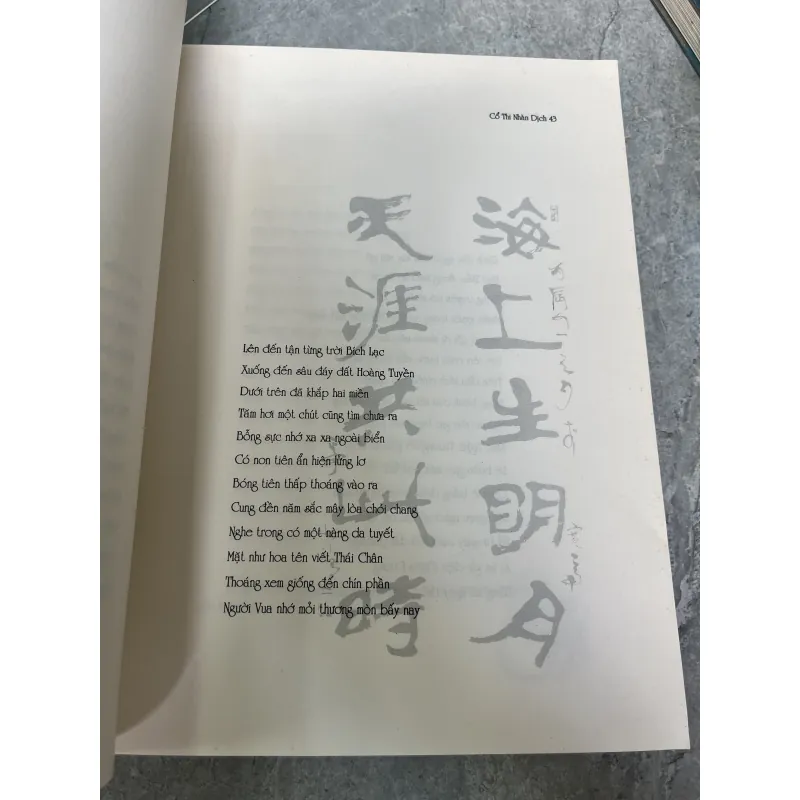 Cổ Thi Nhàn Dịch 43
海上生眀月
天涯共此時
Lên đến tận từng trời Bích Lạc
Xuống đến sâu đáy đất Hoàng Tuyền
Dưới trên đã khắp hai miền
Tăm hơi một chút cũng tìm chưa ra
Bỗng sực nhớ xa xa ngoài biển
Có non tiên ẩn hiện lửng lơ
Bóng tiên thấp thoáng vào ra
Cung đền năm sắc mây lòa chói chang
Nghe trong có một nàng da tuyết
Mặt như hoa tên viết Thái Chân
Thoáng xem giống đến chín phần
Người Vua nhớ mỏi thương mòn bấy nay